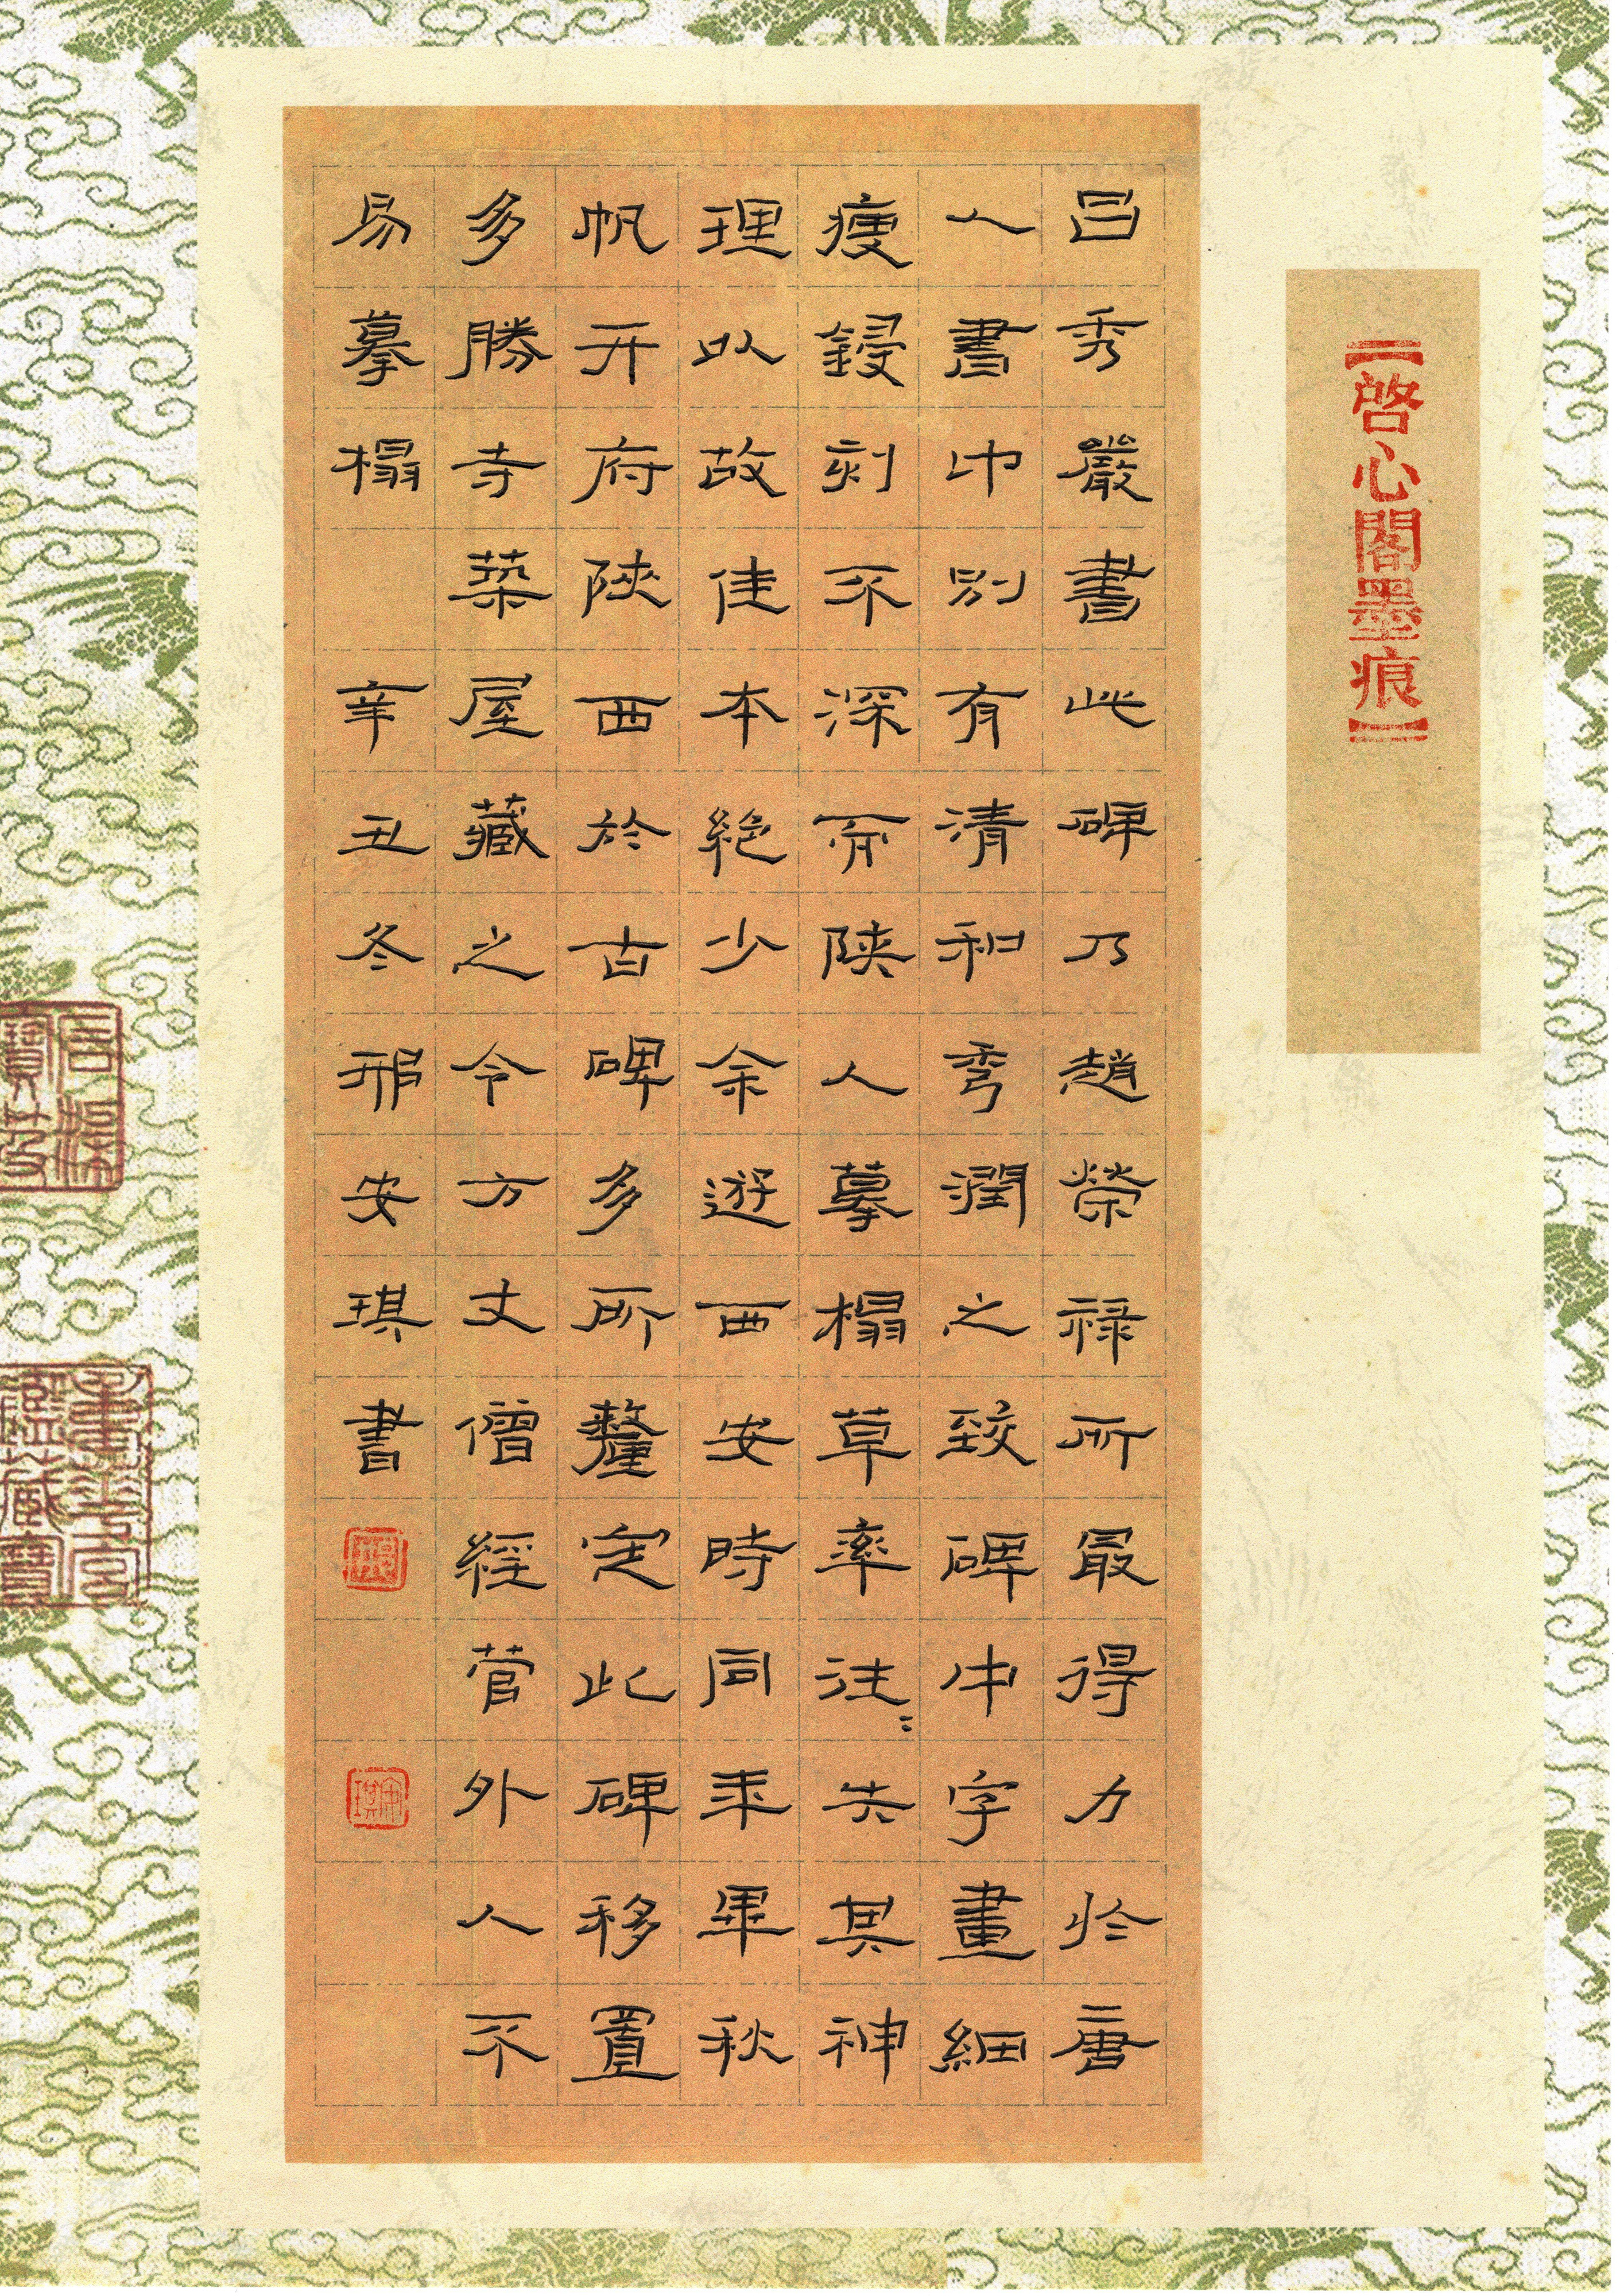 【啓心閣墨痕】
呂秀嚴書此碑乃趙榮祿所最得力於唐
人書中別有清和秀潤之致碑中字畫細
瘦鋟刻不深前陝人摹榻草率往〻失其神
理以故佳本絕少余遊西安時同年畢秋
帆開府陝西於古碑多所釐定此碑移置
多勝寺築屋藏之令方丈僧經管外人不
易摹榻 辛丑冬邢安琪書